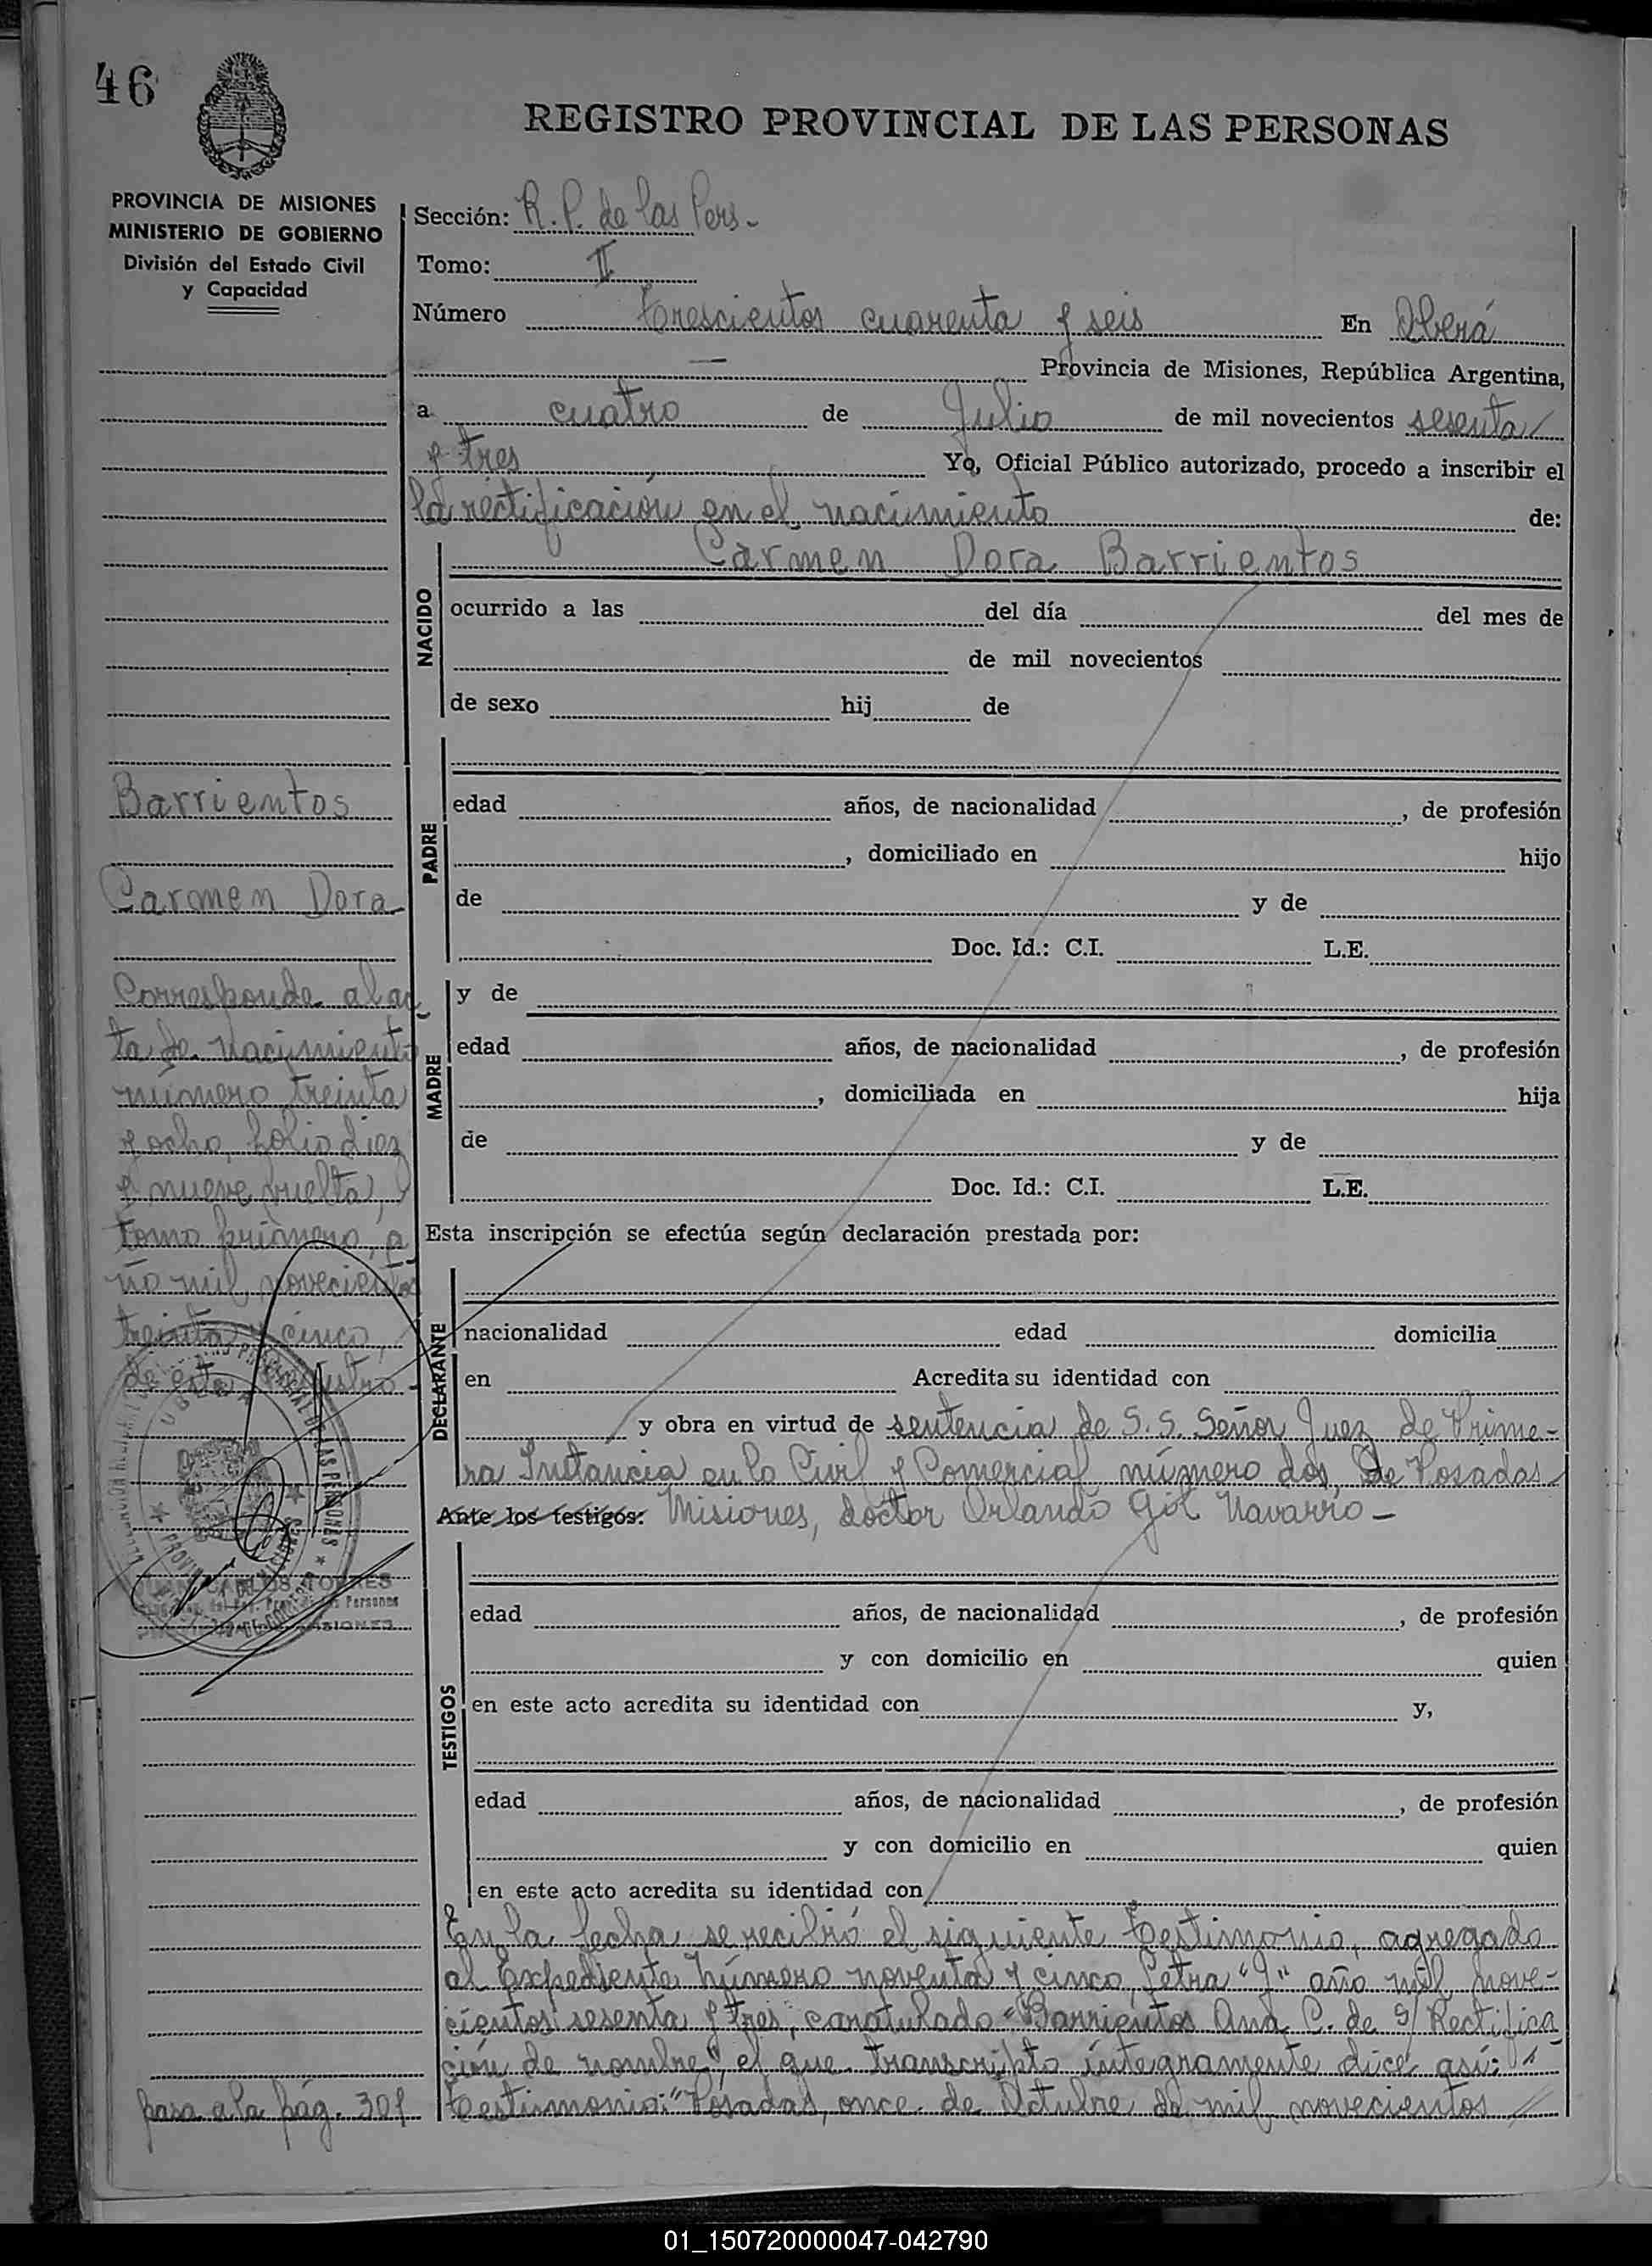 46
REGISTRO PROVINCIAL DE LAS PERSONAS
PROVINCIA DE MISIONES
MINISTERIO DE GOBIERNO
División del Estado Civil
y Capacidad
Sección: R. P. de las Pers.
Tomo: II
Número trescientos cuarenta y seis En Oberá
Provincia de Misiones, República Argentina,
a cuatro de Julio de mil novecientos sesenta
y tres Yo, Oficial Público autorizado, procedo a inscribir el
la rectificación en el nacimiento de:
NACIDO
Carmen Dora Barrientos
ocurrido a las del día del mes de
de mil novecientos
de sexo hij de
Barrientos
Carmen Dora
Corresponde al ac
ta de nacimiento
número treinta
y ocho, folio diez
y nueve vuelta,
tomo primero, a
ño mil novecientos
treinta y cinco,
de este
PADRE
edad años, de nacionalidad , de profesión
, domiciliado en hijo
de y de
Doc. Id.: C.I. L.E.
MADRE
y de
edad años, de nacionalidad , de profesión
, domiciliada en hija
de y de
Doc. Id.: C.I. L.E.
Esta inscripción se efectúa según declaración prestada por:
DECLARANTE
nacionalidad edad domicilia
en Acredita su identidad con
y obra en virtud de sentencia de S. S. Señor Juez de Prime-
ra Instancia en lo Civil y Comercial número dos, de Posadas
Ante los testigos: Misiones, doctor Orlando Gil Navarro -
TESTIGOS
edad años, de nacionalidad , de profesión
y con domicilio en quien
en este acto acredita su identidad con y,
edad años, de nacionalidad , de profesión
y con domicilio en quien
en este acto acredita su identidad con
En la fecha se recibió el siguiente testimonio, agregado
al Expediente número noventa y cinco, letra "J" año mil nove-
cientos sesenta y tres, caratulado "Barrientos Ana C. de s/ Rectifica
ción de nombre", el que transcripto íntegramente dice así:
Testimonio: "Posadas, once de Octubre de mil novecientos
pasa a la pág. 301
CARLOS TORRES
01_150720000047-042790